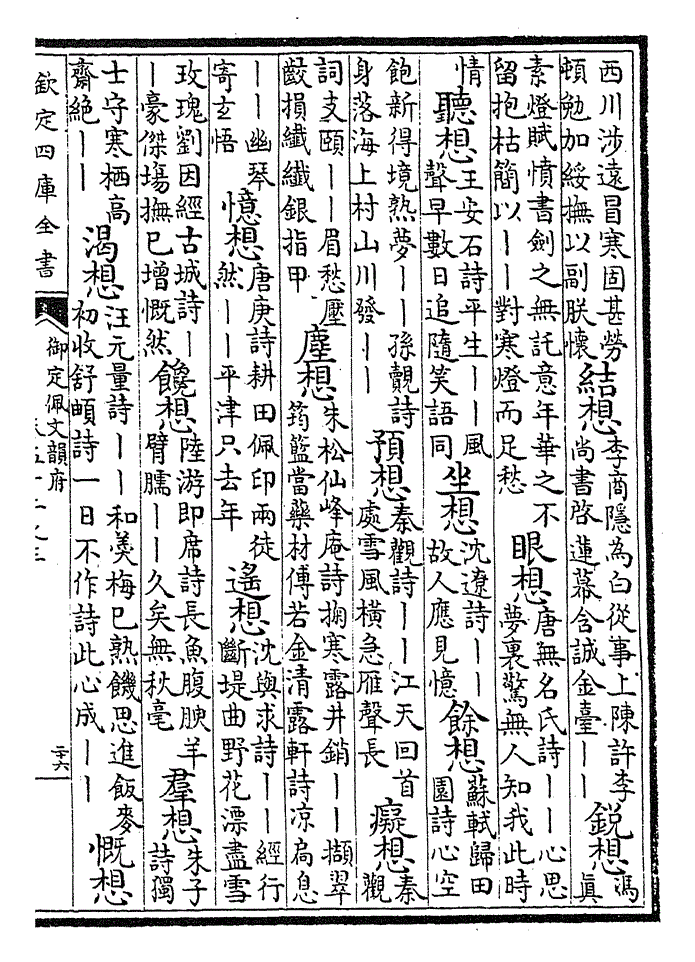 西川涉遠冒寒固甚勞頓勉加綏撫以副朕懷結想李商隱為白從事上陳許李尚書啓蓮幕含誠金臺丨丨銳想馮真
素燈賦憤書劍之無託意年華之不留抱枯簡以丨丨對寒燈而足愁眼想唐無名氏詩丨丨心思夢裏驚無人知我此時
情聽想王安石詩平生丨丨風聲早數日追隨笑語同坐想沈遼詩丨丨故人應見憶餘想蘇軾歸田園詩心空
飽新得境熟夢丨丨孫覿詩身落海上村山川發丨丨預想秦觀詩丨丨江天回首處雪風橫急雁聲長癡想秦觀
詞支頤丨丨眉愁壓皺損纖纖銀指甲塵想朱松仙峰庵詩掬寒露井銷丨丨擷翠筠籃當藥材傅若金清露軒詩涼扃息
丨丨幽琴寄玄悟憶想唐庚詩耕田佩印兩徒然丨丨平津只去年遙想沈與求詩丨丨經行斷堤曲野花漂盡雪
玫瑰劉因經古城詩丨丨豪傑塲撫已增慨然饞想陸游即席詩長魚腹腴羊臂臑丨丨久矣無秋毫羣想朱子詩獨
士守寒栖高齋絕丨丨渴想汪元量詩丨丨和羮梅已熟饑思進飯麥初收舒頔詩一日不作詩此心成丨丨慨想
欽定四庫全書
御定佩文韻府
二十六